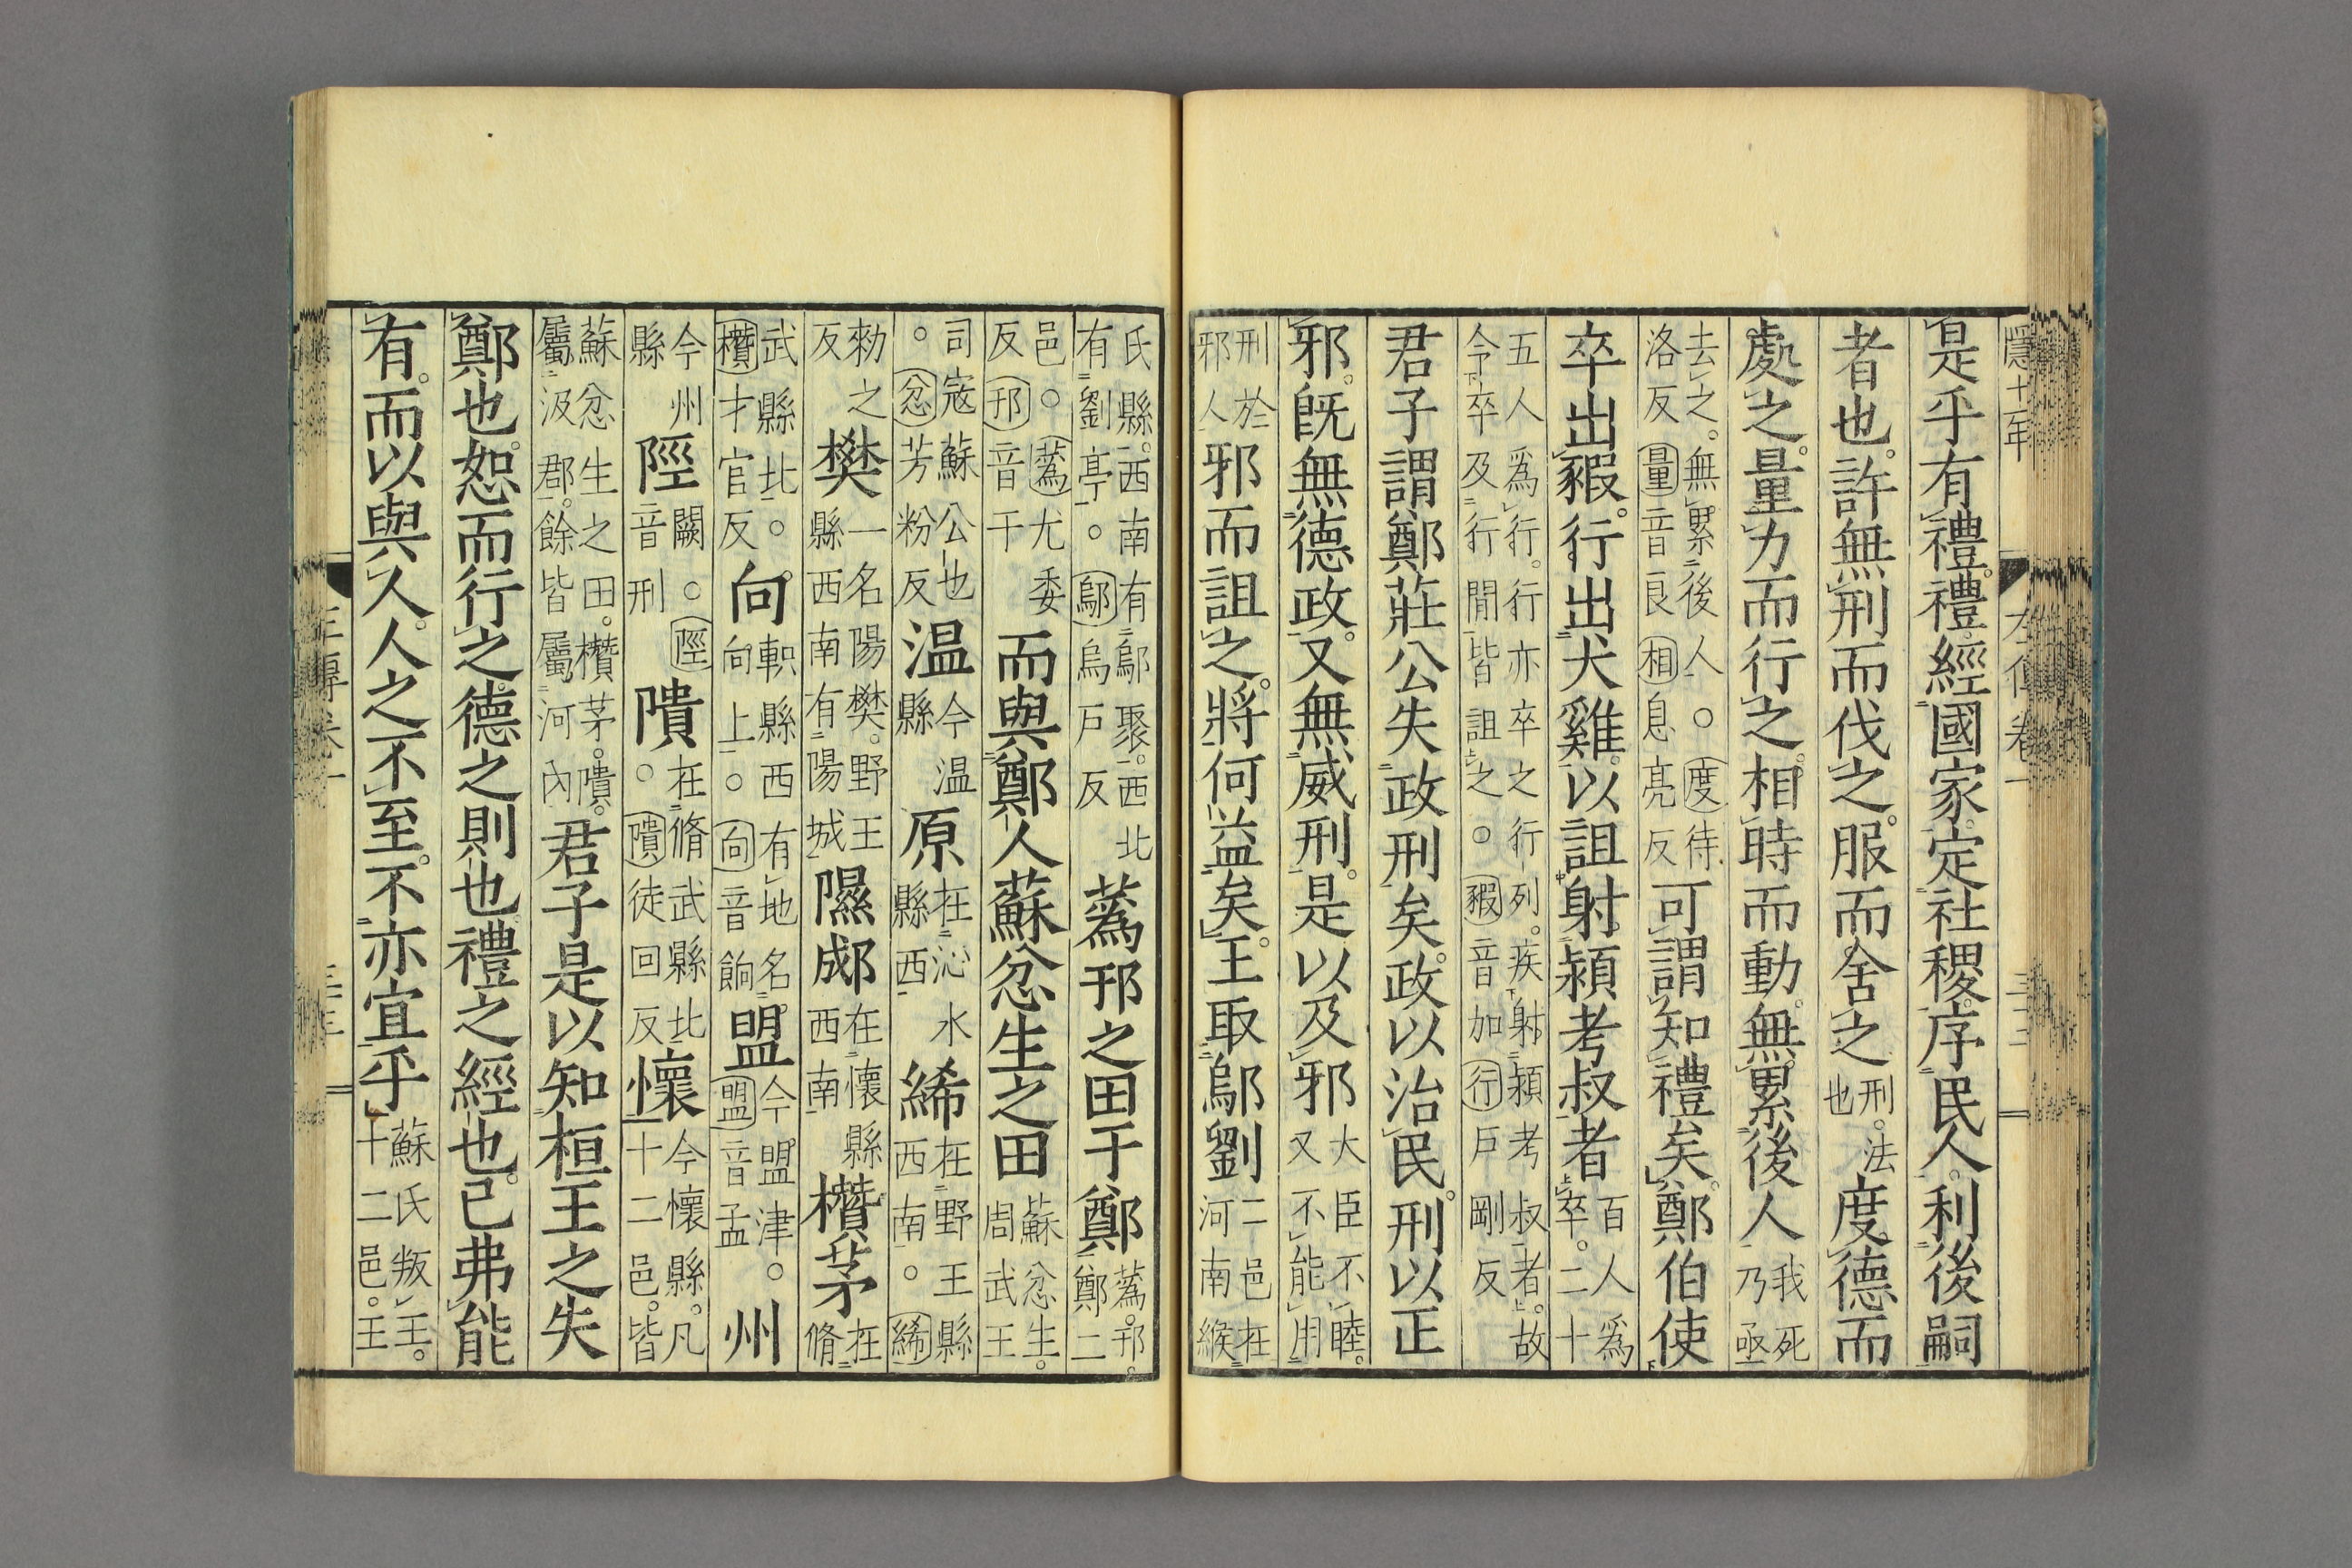 隱十一年
左傳卷一
是乎有禮。禮經國家。定社稷。序民人。利後嗣
者也。許無刑而伐之。服而舍之刑法也。度德而
處之。量力而行之。相時而動。無累後人我死乃亟
去之。無累後人○度待洛反量音良相息亮反可謂知禮矣。鄭伯使
卒出豭。行出犬雞。以詛射潁考叔者百人爲卒。二十
五人爲行。行亦卒之行列。疾射潁考叔者。故令卒及行閒皆詛之○豭音加行戶剛反
君子謂鄭莊公失政刑矣。政以治民。刑以正
邪。既無德政。又無威刑。是以及邪大臣不睦。又不能用
刑於邪人邪而詛之。將何益矣。王取鄔劉二邑在河南緱
氏縣。西南有鄔聚。西北有劉亭○鄔烏戶反蒍邘之田于鄭蒍。邘。鄭二
邑○蒍尤委反邘音干而與鄭人蘇忿生之田蘇忿生。周武王
司寇蘇公也○忿芳粉反温今温縣原在沁水縣西絺在野王縣西南○絺
勑之反樊一名陽樊。野王縣西南有陽城隰郕在懷縣西南欑茅在脩
武縣北○欑才官反向軹縣西有地名向上○向音餉盟今盟津○盟音孟州
今州縣陘闕○陘音刑隤在脩武縣北○隤徒回反懷今懷縣。凡十二邑。皆
蘇忿生之田。欑茅。隤。屬汲郡。餘皆屬河內君子是以知桓王之失
鄭也。恕而行之。德之則也。禮之經也。己弗能
有。而以與人。人之不至。不亦宜乎蘇氏叛王。十二邑。王